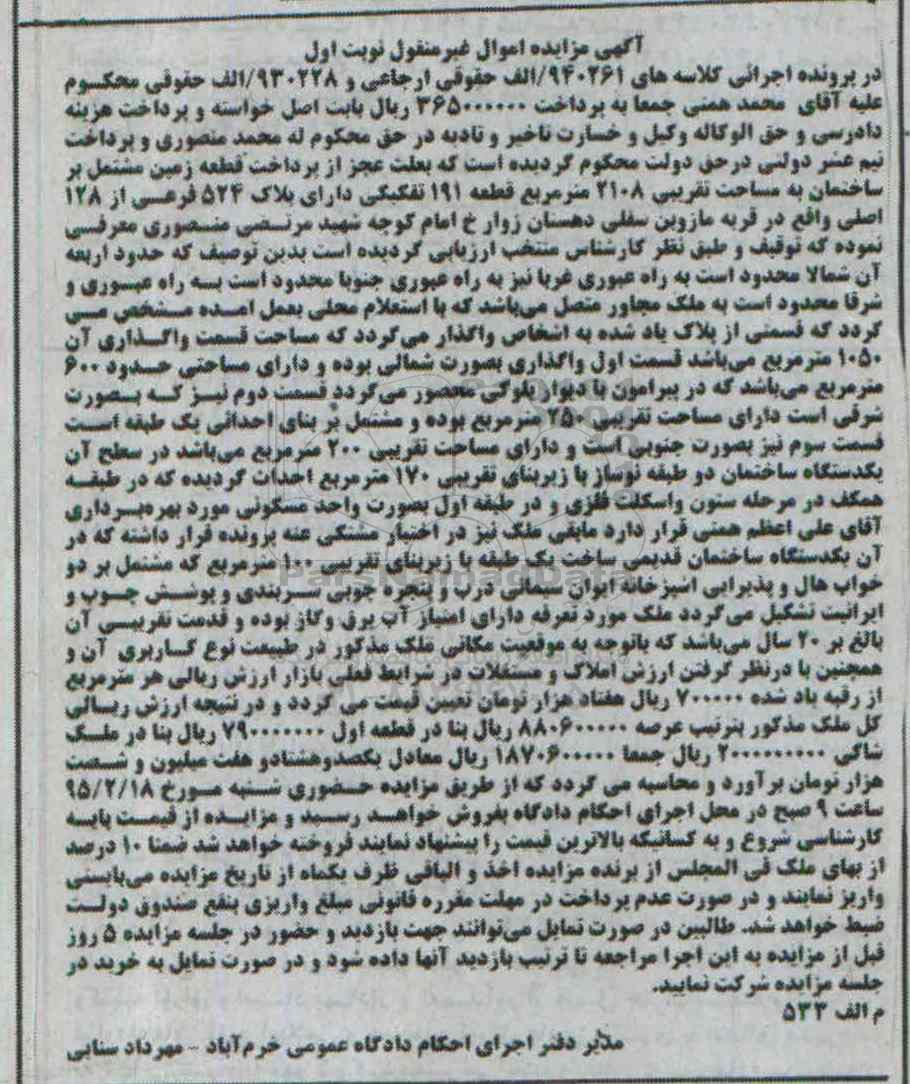 آگهی مزایده اموال غیرمنقول نوبت اول
در پرونده اجرائی کلاسه های ۹۴۰۲۶۱/الف حقوقی ارجاعی و ۹۳۰۲۲۸/الف حقوقی محکوم
علیه آقای محمد همتی جمعا به پرداخت ۳۶۵۰۰۰۰۰۰ ریال بابت اصل خواسته و پرداخت هزینه
دادرسی و حق الوکاله وکیل و خسارت تاخیر و تادیه در حق محکوم له محمد منصوری و پرداخت
نیم عشر دولتی درحق دولت محکوم گردیده است که بعلت عجز از پرداخت قطعه زمین مشتمل بر
ساختمان به مساحت تقریبی ۲۱۰۸ مترمربع قطعه ۱۹۱ تفکیکی دارای پلاک ۵۲۴ فرعی از ۱۲۸
اصلی واقع در قریه مازوین سفلی دهستان زوار خ امام کوچه شهید مرتضی منصوری معرفی
نموده که توقیف و طبق نظر کارشناس منتخب ارزیابی گردیده است بدین توصیف که حدود اربعه
آن شمالا محدود است به راه عبوری غربا نیز به راه عبوری جنوبا محدود است به راه عبوری و
شرقا محدود است به ملک مجاور متصل می‌باشد که با استعلام محلی بعمل امده مشخص می
گردد که قسمتی از پلاک یاد شده به اشخاص واگذار می‌گردد که مساحت قسمت واگذاری آن
۱۰۵۰ مترمربع می‌باشد قسمت اول واگذاری بصورت شمالی بوده و دارای مساحتی حدود ۶۰۰
مترمربع می‌باشد که در پیرامون با دیوار بلوکی محصور می‌گردد قسمت دوم نیز که بصورت
شرقی است دارای مساحت تقریبی ۲۵۰ مترمربع بوده و مشتمل بر بنای احداثی یک طبقه است
قسمت سوم نیز بصورت جنوبی است و دارای مساحت تقریبی ۲۰۰ مترمربع می‌باشد در سطح آن
یکدستگاه ساختمان دو طبقه نوساز با زیربنای تقریبی ۱۷۰ مترمربع احداث گردیده که در طبقه
همکف در مرحله ستون واسکلت فلزی و در طبقه اول بصورت واحد مسکونی مورد بهره‌برداری
آقای علی اعظم همتی قرار دارد مابقی ملک نیز در اختیار مشتکی عنه پرونده قرار داشته که در
آن یکدستگاه ساختمان قدیمی ساخت یک طبقه با زیربنای تقریبی ۱۰۰ مترمربع که مشتمل بر دو
خواب هال و پذیرایی اشپزخانه ایوان سیمانی درب و پنجره چوبی سربندی و پوشش چوب و
ایرانیت تشکیل می‌گردد ملک مورد تعرفه دارای امتیاز آب برق وگاز بوده و قدمت تقریبی آن
بالغ بر ۲۰ سال می‌باشد که باتوجه به موقعیت مکانی ملک مذکور در طبیعت نوع کاربری آن و
همچنین با درنظر گرفتن ارزش املاک و مستغلات در شرایط فعلی بازار ارزش ریالی هر مترمربع
از رقبه یاد شده ۷۰۰۰۰۰ ریال هفتاد هزار تومان تعیین قیمت می گردد و در نتیجه ارزش ریالی
کل ملک مذکور بترتیب عرصه ۸۸۰۶۰۰۰۰۰ ریال بنا در قطعه اول ۷۹۰۰۰۰۰۰۰ ریال بنا در ملک
شاکی ۲۰۰۰۰۰۰۰۰ ریال جمعا ۱۸۷۰۶۰۰۰۰۰ ریال معادل یکصدوهشتادو هفت میلیون و شصت
هزار تومان برآورد و محاسبه می گردد که از طریق مزایده حضوری شنبه مورخ ۹۵/۲/۱۸
ساعت ۹ صبح در محل اجرای احکام دادگاه بفروش خواهد رسید و مزایده از قیمت پایه
کارشناسی شروع و به کسانیکه بالاترین قیمت را پیشنهاد نمایند فروخته خواهد شد ضمنا ۱۰ درصد
از بهای ملک فی المجلس از برنده مزایده اخذ و الباقی ظرف یکماه از تاریخ مزایده می‌بایستی
واریز نمایند و در صورت عدم پرداخت در مهلت مقرره قانونی مبلغ واریزی بنفع صندوق دولت
ضبط خواهد شد. طالبین در صورت تمایل می‌توانند جهت بازدید و حضور در جلسه مزایده ۵ روز
قبل از مزایده به این اجرا مراجعه تا ترتیب بازدید آنها داده شود و در صورت تمایل به خرید در
جلسه مزایده شرکت نمایید.
م الف ۵۳۳
مدیر دفتر اجرای احکام دادگاه عمومی خرم‌آباد - مهرداد سنایی
ParsNamadData